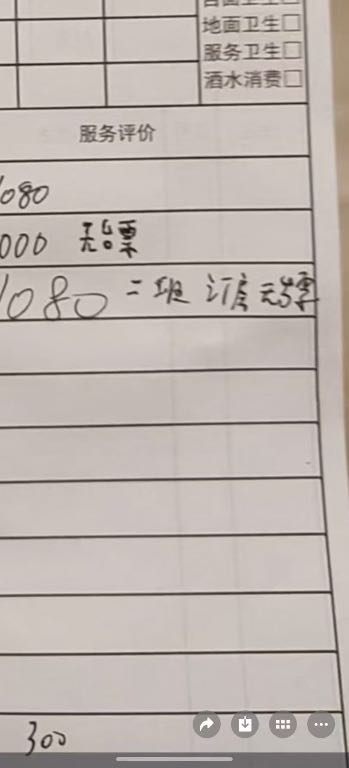 地面卫生□
服务卫生□
酒水消费□
服务评价
1080
000 无骉票
1080 二班 订房 无票
300